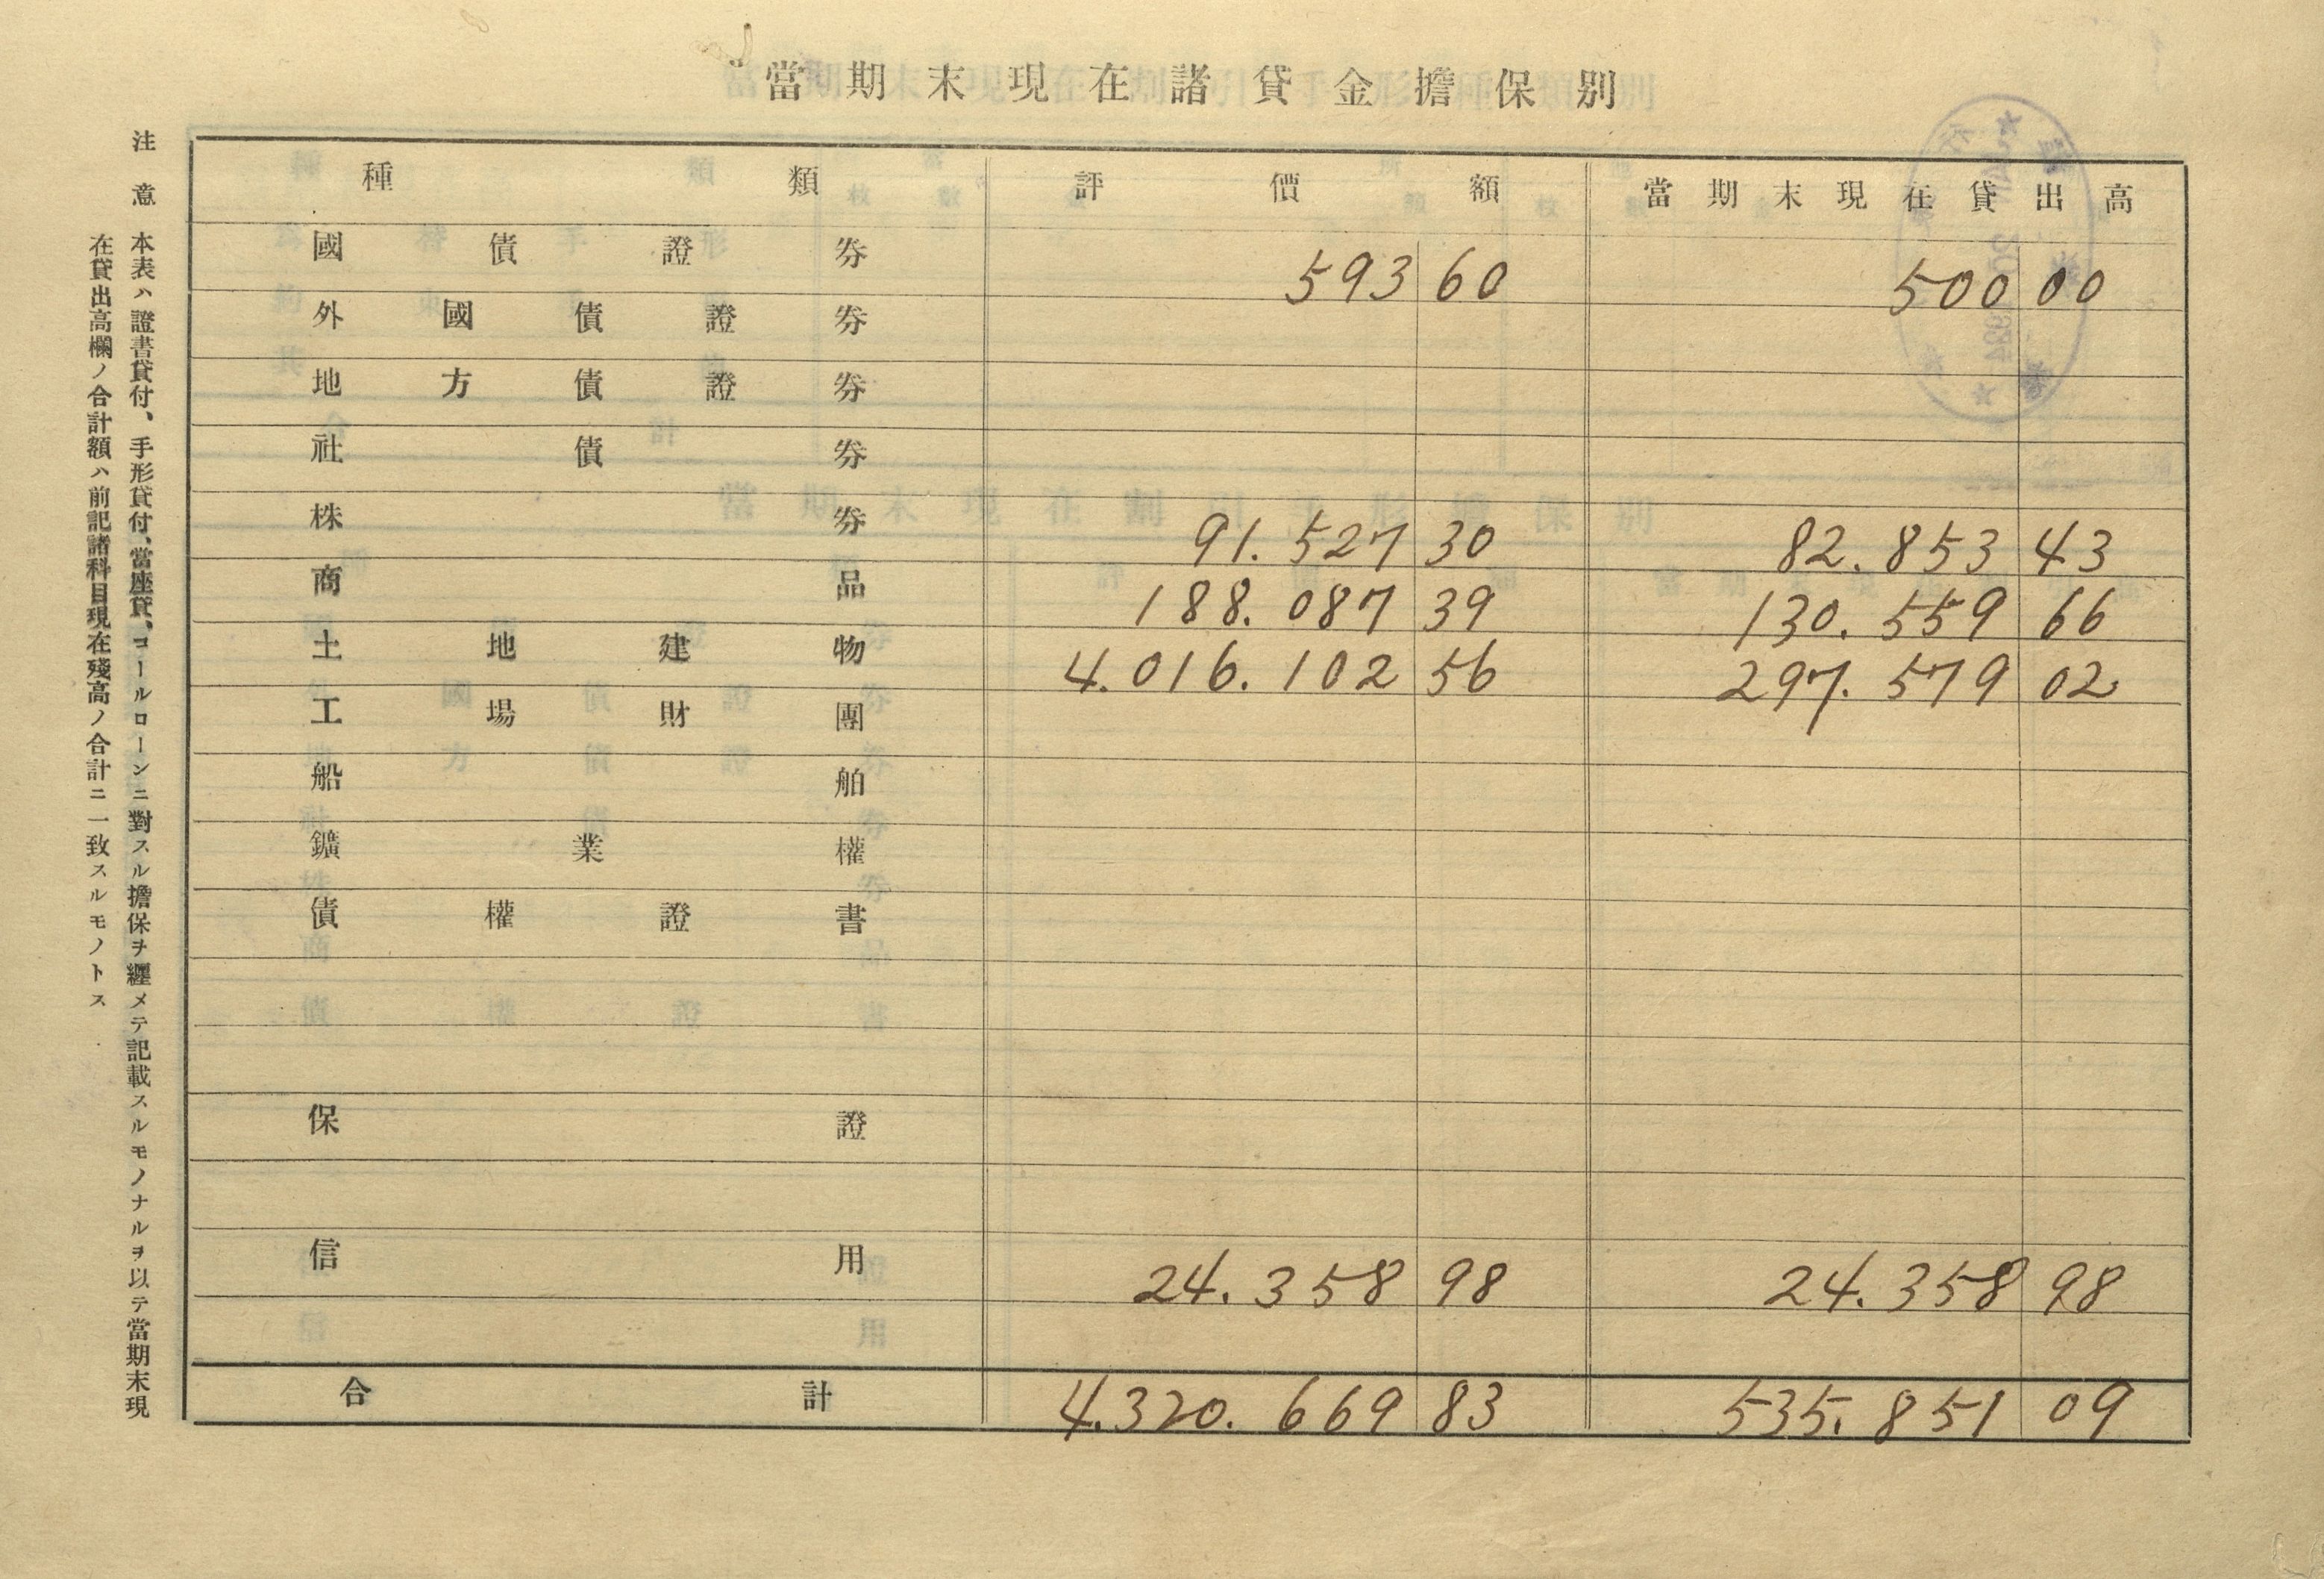 當期末現在諸貸金擔保別
種類 評價額 當期末現在貸出高
國債證券 593 60 500 00
外國債證券
地方債證券
社債券
株券 91.527 30 82.853 43
商品 188.087 39 130.559 66
土地建物 4.016.102 56 297.579 02
工場財團
船舶
鑛業權
債權證書
保證
信用 24.358 98 24.358 98
合計 4.320.669 83 535.851 09
注意 本表ハ證書貸付、手形貸付、當座貸、コールローンニ對スル擔保ヲ纒メテ記載スルモノナルヲ以テ當期末現
在貸出高欄ノ合計額ハ前記諸科目現在殘高ノ合計ニ一致スルモノトス